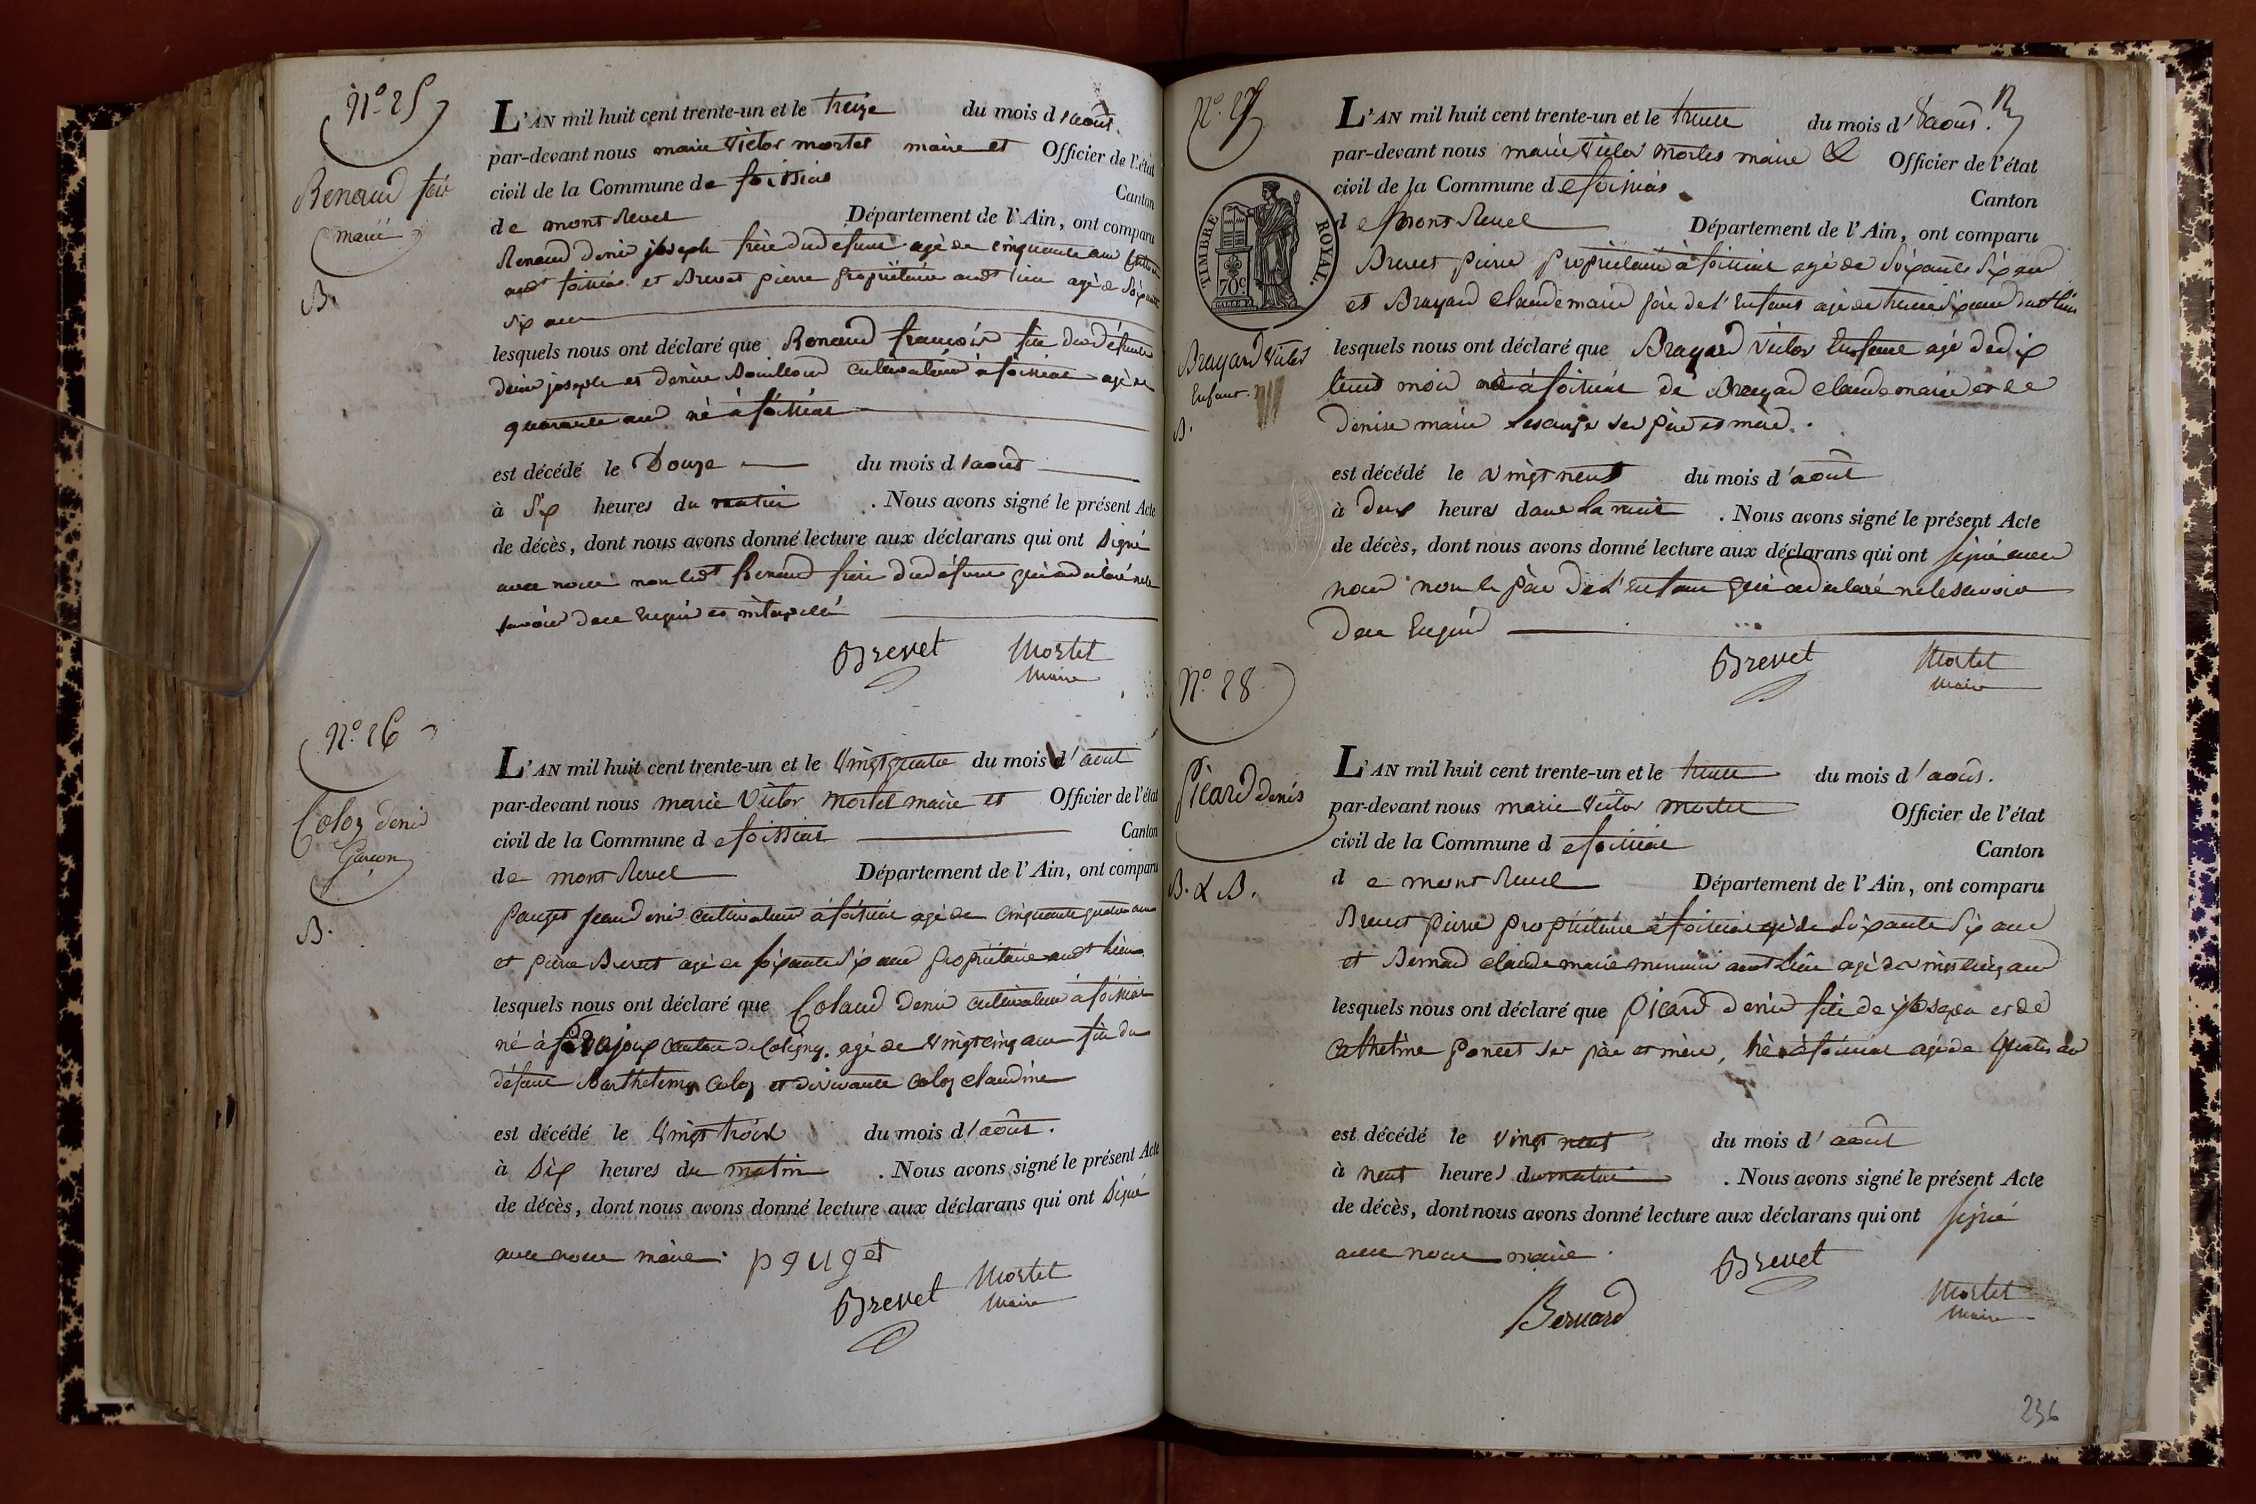 N.º 25
Renaud
marié
B.
L'AN mil huit cent trente-un et le treize du mois d'août.
par-devant nous marie Victor mortet maire et Officier de l'état
civil de la Commune de foissiat Canton
de montrevel Département de l'Ain, ont comparu
Renaud denis joseph frère du défunt agé de cinquante ans
audt foissiat et Brevet pierre propriétaire audt lieu agé de soixante
six ans
lesquels nous ont déclaré que Renaud françois fils du défunt
denis joseph et denise cultivateur à foissiat agé de
quarante ans né à foissiat
est décédé le Douze du mois d'août
à six heures du matin . Nous avons signé le présent Acte
de décès, dont nous avons donné lecture aux déclarans qui ont signé
avec nous non ledt Renaud frère du défunt qui a déclaré ne le
savoir de ce requis et interpellé
Brevet Mortet
Maire
N.º 26
Coloz denis
Garçon
B.
L'AN mil huit cent trente-un et le vingt quatre du mois d'août
par-devant nous marie Victor mortet maire et Officier de l'état
civil de la Commune de foissiat Canton
de montrevel Département de l'Ain, ont comparu
pauget jean denis cultivateur à foissiat agé de cinquante quatre ans
et pierre Brevet agé de soixante six ans propriétaire audt lieu
lesquels nous ont déclaré que Colaud denis cultivateur à foissiat
né à canton de Coligny. agé de vingt cinq ans fils du
défunt Barthelemy Coloz et de vivante Coloz claudine
est décédé le vingt trois du mois d'août.
à six heures du matin . Nous avons signé le présent Acte
de décès, dont nous avons donné lecture aux déclarans qui ont signé
avec nous maire. pauget
Brevet Mortet
Maire
N.º 27
TIMBRE ROYAL
70c
Brayard Victor
Enfant.
B.
L'AN mil huit cent trente-un et le trente du mois d'août.
par-devant nous marie Victor mortet maire & Officier de l'état
civil de la Commune de foissiat Canton
de montrevel Département de l'Ain, ont comparu
Brevet pierre propriétaire à foissiat agé de soixante six ans
et Brayard claude marie père de l'enfant agé de trente six ans audt lieu
lesquels nous ont déclaré que Brayard victor Enfant agé de dix
huit mois né à foissiat de Brayard claude marie et de
denise marie ses père et mère.
est décédé le vingt neuf du mois d'août
à deux heures dans la nuit . Nous avons signé le présent Acte
de décès, dont nous avons donné lecture aux déclarans qui ont signé avec
nous non le père de l'enfant qui a déclaré ne le savoir
de ce requis
Brevet Mortet
Maire
N.º 28
Picard denis
B. & B.
L'AN mil huit cent trente-un et le trente du mois d'août.
par-devant nous marie victor mortet Officier de l'état
civil de la Commune de foissiat Canton
de montrevel Département de l'Ain, ont comparu
Brevet pierre propriétaire à foissiat agé de soixante six ans
et Bernard claude marie audt lieu agé de vingt cinq ans
lesquels nous ont déclaré que Picard denis fils de joseph et de
Catherine poncet ses père et mère, né à foissiat agé de quatre ans
est décédé le vingt neuf du mois d'août
à neuf heures du matin . Nous avons signé le présent Acte
de décès, dont nous avons donné lecture aux déclarans qui ont signé
avec nous maire. Brevet
Bernard Mortet
Maire
236